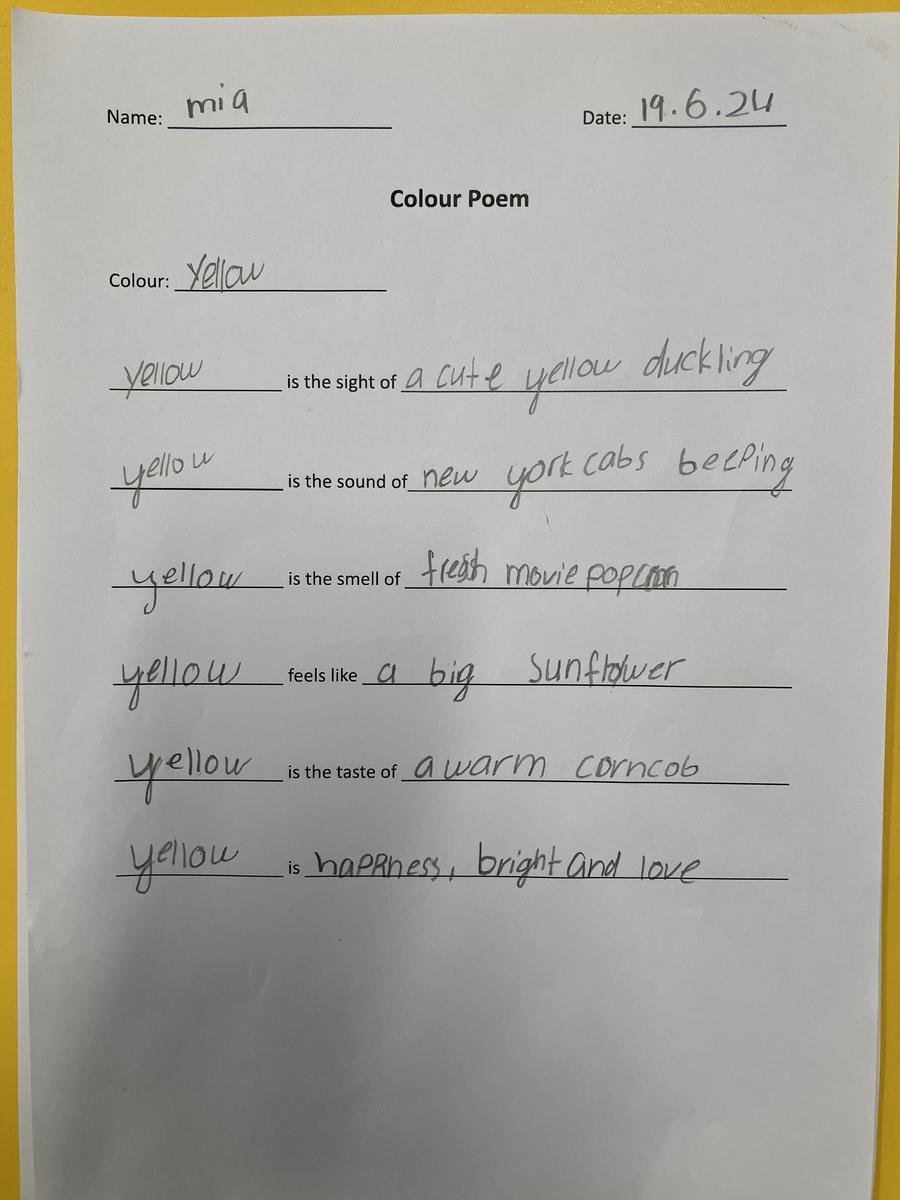 Name: mia Date: 19.6.24
Colour Poem
Colour: Yellow
yellow is the sight of a cute yellow duckling
yellow is the sound of new york cabs beeping
yellow is the smell of fresh movie popcorn
yellow feels like a big sunflower
yellow is the taste of a warm corncob
yellow is happiness, bright and love